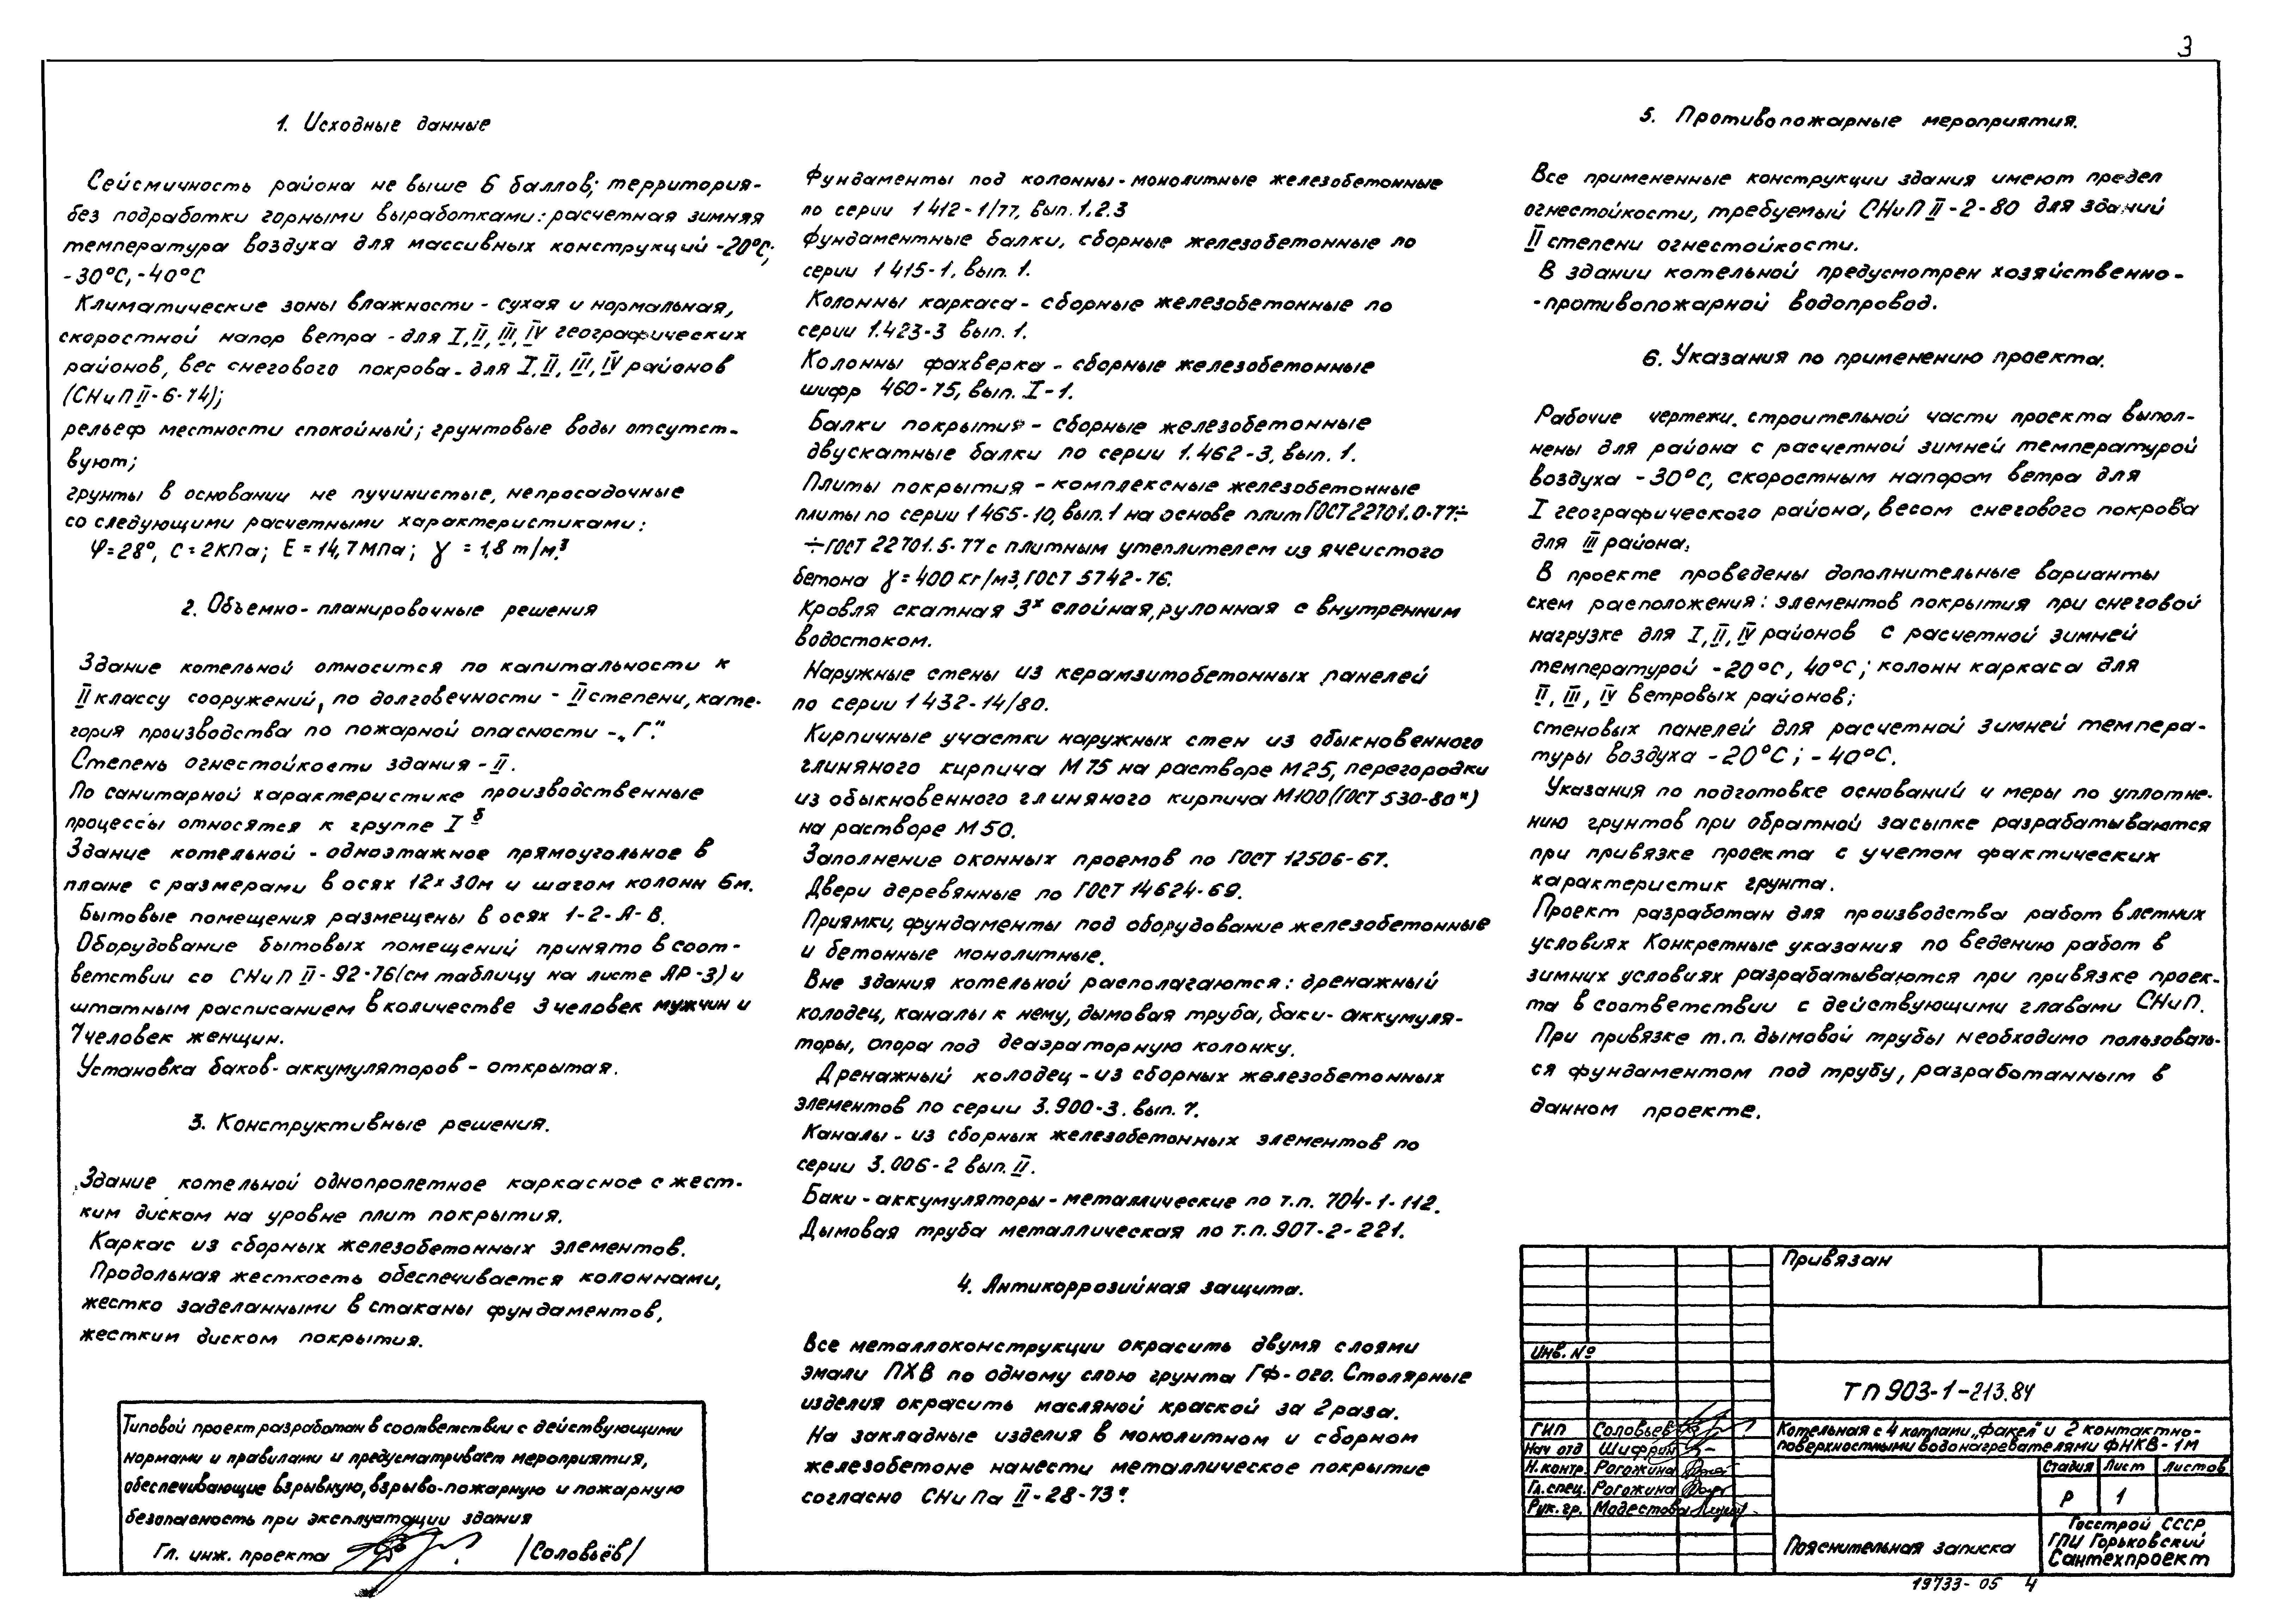 3
1. Исходные данные
Сейсмичность района не выше 6 баллов; территория-
без подработки горными выработками: расчетная зимняя
температура воздуха для массивных конструкций -20°С;
-30°С, -40°С
Климатические зоны влажности - сухая и нормальная,
скоростной напор ветра - для I, II, III, IV географических
районов, вес снегового покрова - для I, II, III, IV районов
(СНиП II-6-74);
рельеф местности спокойный; грунтовые воды отсутст-
вуют;
грунты в основании не пучинистые, непросадочные
со следующими расчетными характеристиками:
φ=28°, С=2КПа; Е=14,7МПа; γ=1,8т/м³
2. Объемно-планировочные решения
Здание котельной относится по капитальности к
II классу сооружений, по долговечности - II степени, кате-
гория производства по пожарной опасности - „Г".
Степень огнестойкости здания - II.
По санитарной характеристике производственные
процессы относятся к группе I б
Здание котельной - одноэтажное прямоугольное в
плане с размерами в осях 12×30м и шагом колонн 6м.
Бытовые помещения размещены в осях 1-2-А-В.
Оборудование бытовых помещений принято в соот-
ветствии со СНиП II-92-76 (см таблицу на листе АР-3) и
штатным расписанием в количестве 3 человек мужчин и
7 человек женщин.
Установка баков-аккумуляторов - открытая.
3. Конструктивные решения.
Здание котельной однопролетное каркасное с жест-
ким диском на уровне плит покрытия.
Каркас из сборных железобетонных элементов.
Продольная жесткость обеспечивается колоннами,
жестко заделанными в стаканы фундаментов,
жестким диском покрытия.
Типовой проект разработан в соответствии с действующими
нормами и правилами и предусматривает мероприятия,
обеспечивающие взрывную, взрыво-пожарную и пожарную
безопасность при эксплуатации здания
Гл. инж. проекта /Соловьёв/
Фундаменты под колонны - монолитные железобетонные
по серии 1412-1/77, вып. 1,2.3
Фундаментные балки, сборные железобетонные по
серии 1 415-1, вып. 1.
Колонны каркаса - сборные железобетонные по
серии 1.423-3 вып. 1.
Колонны фахверка - сборные железобетонные
шифр 460-75, вып. I-1.
Балки покрытия - сборные железобетонные
двускатные балки по серии 1.462-3, вып. 1.
Плиты покрытия - комплексные железобетонные
плиты по серии 1 465-10, вып. 1 на основе плит ГОСТ 22701.0-77÷
÷ГОСТ 22701.5-77 с плитным утеплителем из ячеистого
бетона γ=400 кг/м3, ГОСТ 5742-76.
Кровля скатная 3х слойная, рулонная с внутренним
водостоком.
Наружные стены из керамзитобетонных панелей
по серии 1 432-14/80.
Кирпичные участки наружных стен из обыкновенного
глиняного кирпича М75 на растворе М25, перегородки
из обыкновенного глиняного кирпича М100 (ГОСТ 530-80*)
на растворе М50.
Заполнение оконных проемов по ГОСТ 12506-67.
Двери деревянные по ГОСТ 14624-69.
Приямки, фундаменты под оборудование железобетонные
и бетонные монолитные.
Вне здания котельной располагаются: дренажный
колодец, каналы к нему, дымовая труба, баки-аккумуля-
торы, опора под деаэраторную колонку.
Дренажный колодец - из сборных железобетонных
элементов по серии 3.900-3. вып. 7.
Каналы - из сборных железобетонных элементов по
серии 3.006-2 вып. II.
Баки-аккумуляторы - металлические по т.п. 704-1-112.
Дымовая труба металлическая по т.п. 907-2-221.
4. Антикоррозийная защита.
Все металлоконструкции окрасить двумя слоями
эмали ПХВ по одному слою грунта ГФ-020. Столярные
изделия окрасить масляной краской за 2 раза.
На закладные изделия в монолитном и сборном
железобетоне нанести металлическое покрытие
согласно СНиПа II-28-73*.
5. Противопожарные мероприятия.
Все примененные конструкции здания имеют предел
огнестойкости, требуемый СНиП II-2-80 для зданий
II степени огнестойкости.
В здании котельной предусмотрен хозяйственно-
-противопожарной водопровод.
6. Указания по применению проекта.
Рабочие чертежи. строительной части проекта выпол-
нены для района с расчетной зимней температурой
воздуха -30°С, скоростным напором ветра для
I географического района, весом снегового покрова
для III района.
В проекте проведены дополнительные варианты
схем расположения: элементов покрытия при снеговой
нагрузке для I, II, IV районов с расчетной зимней
температурой -20°С, 40°С; колонн каркаса для
II, III, IV ветровых районов;
стеновых панелей для расчетной зимней темпера-
туры воздуха -20°С; -40°С.
Указания по подготовке оснований и меры по уплотне-
нию грунтов при обратной засыпке разрабатываются
при привязке проекта с учетом фактических
характеристик грунта.
Проект разработан для производства работ в летних
условиях Конкретные указания по ведению работ в
зимних условиях разрабатываются при привязке проек-
та в соответствии с действующими главами СНиП.
При привязке т.п. дымовой трубы необходимо пользовать-
ся фундаментом под трубу, разработанным в
данном проекте.
Привязан
Инв. №
ТП 903-1-213.84
ГИП Соловьев
Нач отд Шифрин
Н.контр. Рогожина
Гл.спец. Рогожина
Рук.гр. Модестова
Котельная с 4 котлами „Факел" и 2 контактно-
поверхностными водонагревателями ФНКВ-1М
Стадия Лист Листов
Р 1
Пояснительная записка
Госстрой СССР
ГПИ Горьковский
Сантехпроект
19733-05 4